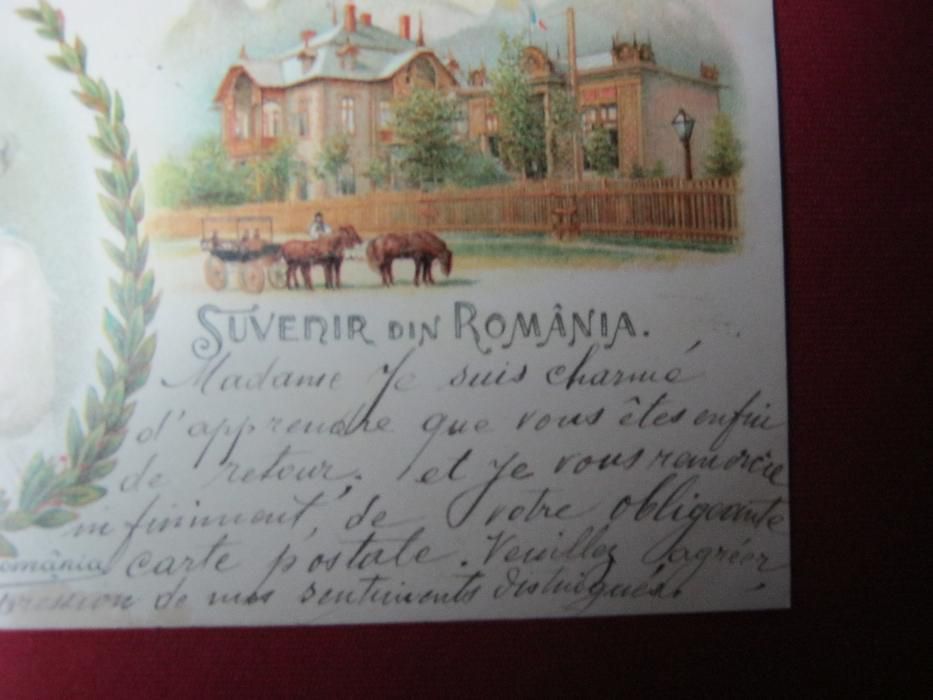 SUVENIR DIN ROMÂNIA.
Madame Je suis charmé
d'apprendre que vous êtes enfin
de retour. et je vous remercie
infiniment, de votre obligeante
omània carte postale. Veuillez agréer
pression de mes sentiments distingués.